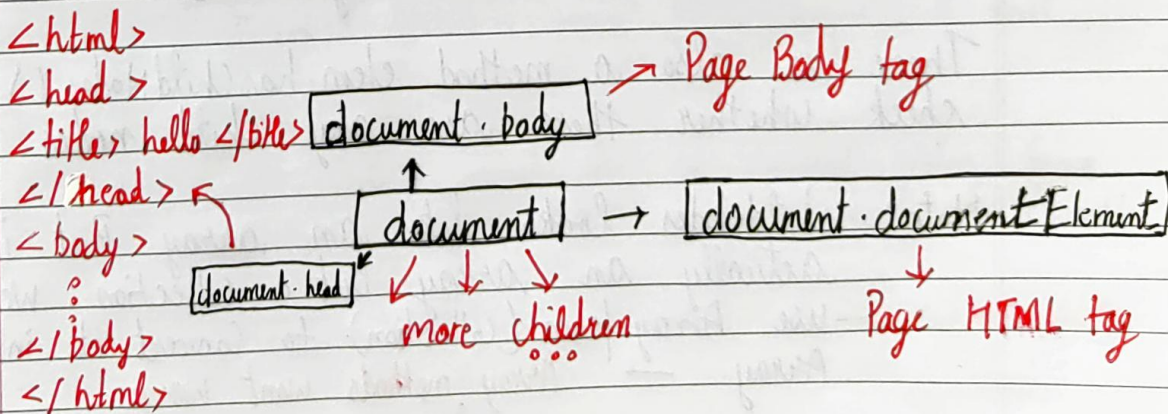 <html>
<head>
<title> hello </title>
</head>
<body>
</body>
</html>
document.body
Page Body tag
document
document.documentElement
document.head
more children
Page HTML tag